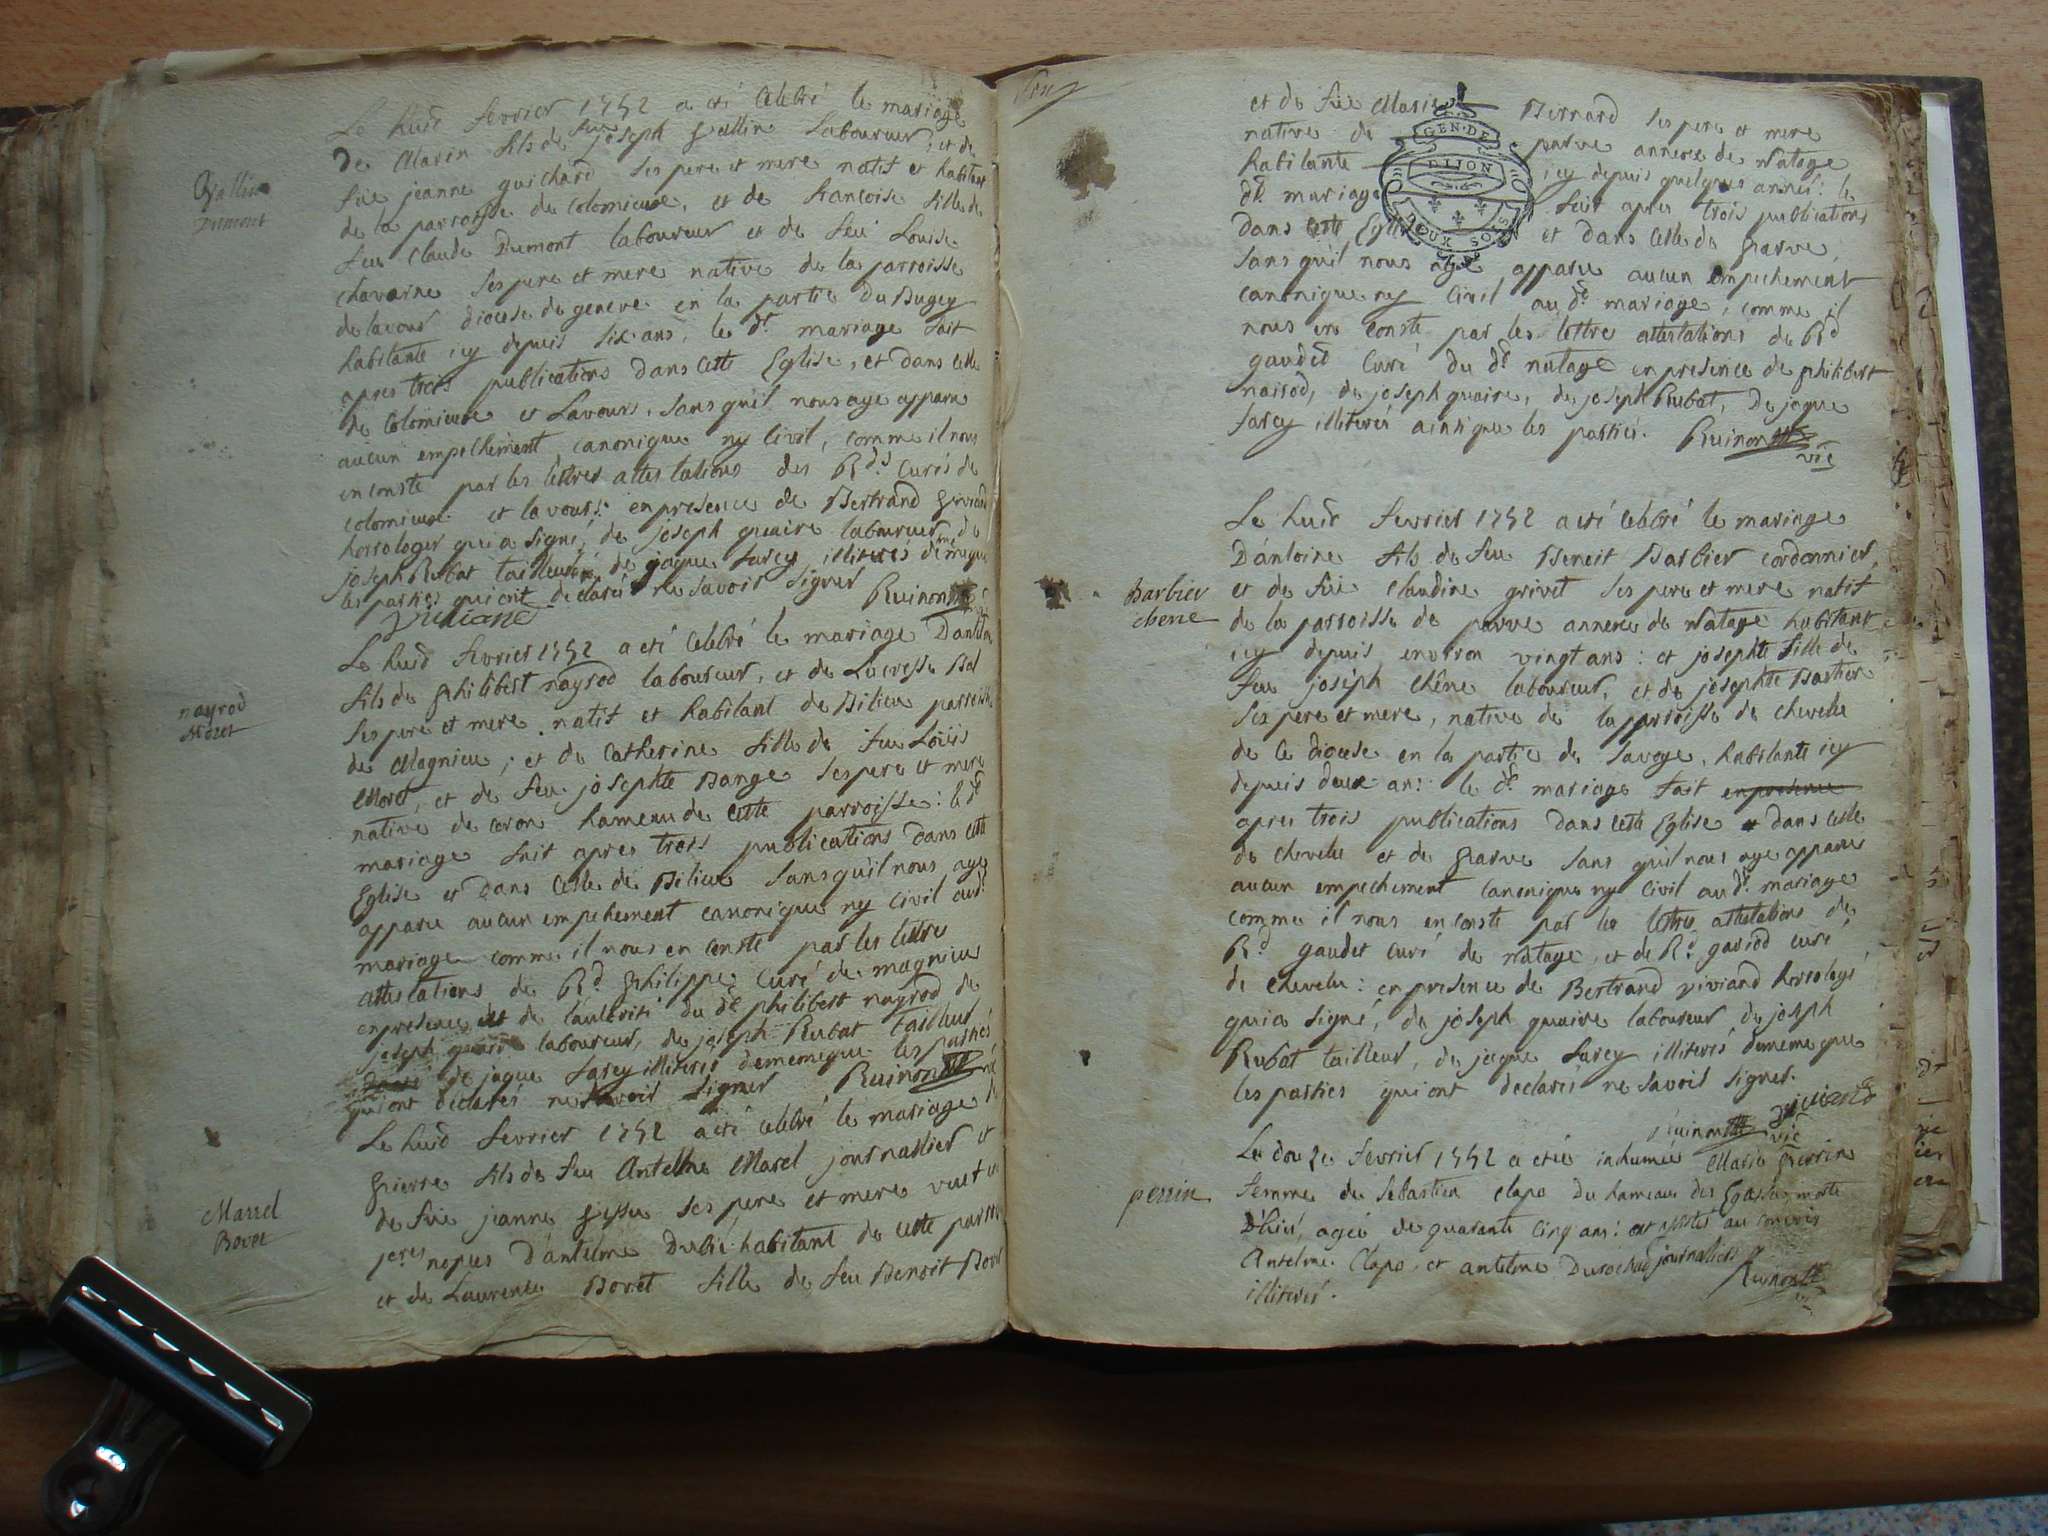 Gallin
Dumont
Le huid fevrier 1752 a eté celebré le mariage
De Marin fils de feu joseph Gallin laboureur, et de
füe jeanne guichard ses pere et mere natif et habitant
de la parroisse de Colomieux, et de francoise fille de
feu Claude Dumont laboureur et de feüe Louise
chavarne ses pere et mere native de la parroisse
de lavour diocese de geneve en la partie du Bugey
habitante icy depuis six ans, le dt mariage fait
apres trois publications dans cette Eglise, et dans celle
de Colomieux et Lavours, sans quil nous aye apparu
aucun empechement canonique ny Civil, comme il nous
en conste par les lettres attestations des Rds Curés de
colomieux et lavours: en presence de Bertrand viviand
horloger qui a signé, de joseph quaire laboureur, de
joseph Rubat tailleur, de jaque farcy illiterés de meme que
les parties qui ont declaré ne savoir signer Ruinon
viviand
nayrod
Moret
Le huid fevrier 1752 a eté celebré le mariage Dantoine
fils de philibert nayrod laboureur, et de Lucresse Bal
ses pere et mere natif et habitant de Bilieu parroisse
de Magnieu; et de Catherine fille de feu Loüis
Moret, et de feu josephte Bange ses pere et mere
native de coron hameau de cette parroisse: le dt
mariage fait apres trois publications dans cette
Eglise et dans celle de Bilieu sans quil nous aye
apparu aucun empechement canonique ny civil audt
mariage comme il nous en conste par les lettre
attestations de Rd philippe curé de magnieu
en presence et de l'autorité du dt philibert nayrod de
joseph quaire laboureur, de joseph Rubat tailleur
de jaque farcy illiterés de meme que les parties
qui ont declarés ne savoir signer Ruinon
Marrel
Bovet
Le huid fevrier 1752 a eté celebré le mariage de
pierre fils de feu Antelme Marel journallier et
de füe jeanne ses pere et mere veuf en
jeres nopces D'antelme Dubié habitant de cette parroisse
et de Laurence Bovet fille de feu Benoit Bovet
et de füe Marie Bernard ses pere et mere
native de parve annexe de Natage
habitante icy depuis quelques années: le
dt. mariage fait apres trois publications
dans cette Eglise et dans celle de parve,
sans quil nous aye apparu aucun empechement
canonique ny Civil au dt mariage, comme il
nous en conste par les lettre attestations de Rd
gaudet Curé du dt natage en presence de philibert
nairod, de joseph quaire, de joseph Rubat, De jaque
farcy illiterés ainsi que les parties. Ruinon
vic
GEN. DE
DIJON
DEUX SOLS
Barbier
chene
Le huid fevrier 1752 a eté celebré le mariage
D'antoine fils de feu Benoit Barbier cordonnier,
et de füe Claudine grivet ses pere et mere natif
de la parroisse de parve annexe de Natage habitant
icy depuis environ vingt ans: et josephte fille de
feu joseph Chêne laboureur, et de josephte Barbier
ses pere et mere, native de la parroisse de chevelu
de ce diocese en la partie de Savoye, habitante icy
depuis deux ans: le dt. mariage fait en presence
apres trois publications dans cette Eglise dans celle
de Chevelu et de parve sans quil nous aye apparu
aucun empechement canonique ny Civil au dt. mariage
comme il nous en conste par les lettres attestations de
Rd gaudet curé de Natage, et de Rd. gariod curé
de Chevelu: en presence de Bertrand viviand horloger
qui a signé, de joseph quaire laboureur de joseph
Rubat tailleur, de jaque farcy illiterés de meme que
les parties qui ont declarés ne savoir signer.
Ruinon vic viviand
perrin
Le douze fevrier 1752 a eteé inhumée Marie perrin
femme de sebastien Clapo du hameau des morte
D'hier, ageé de quarante cinq ans: ont assisté au convois
Antelme Clapo, et antelme Durochat journalliers
illiterés. Ruinon
vic